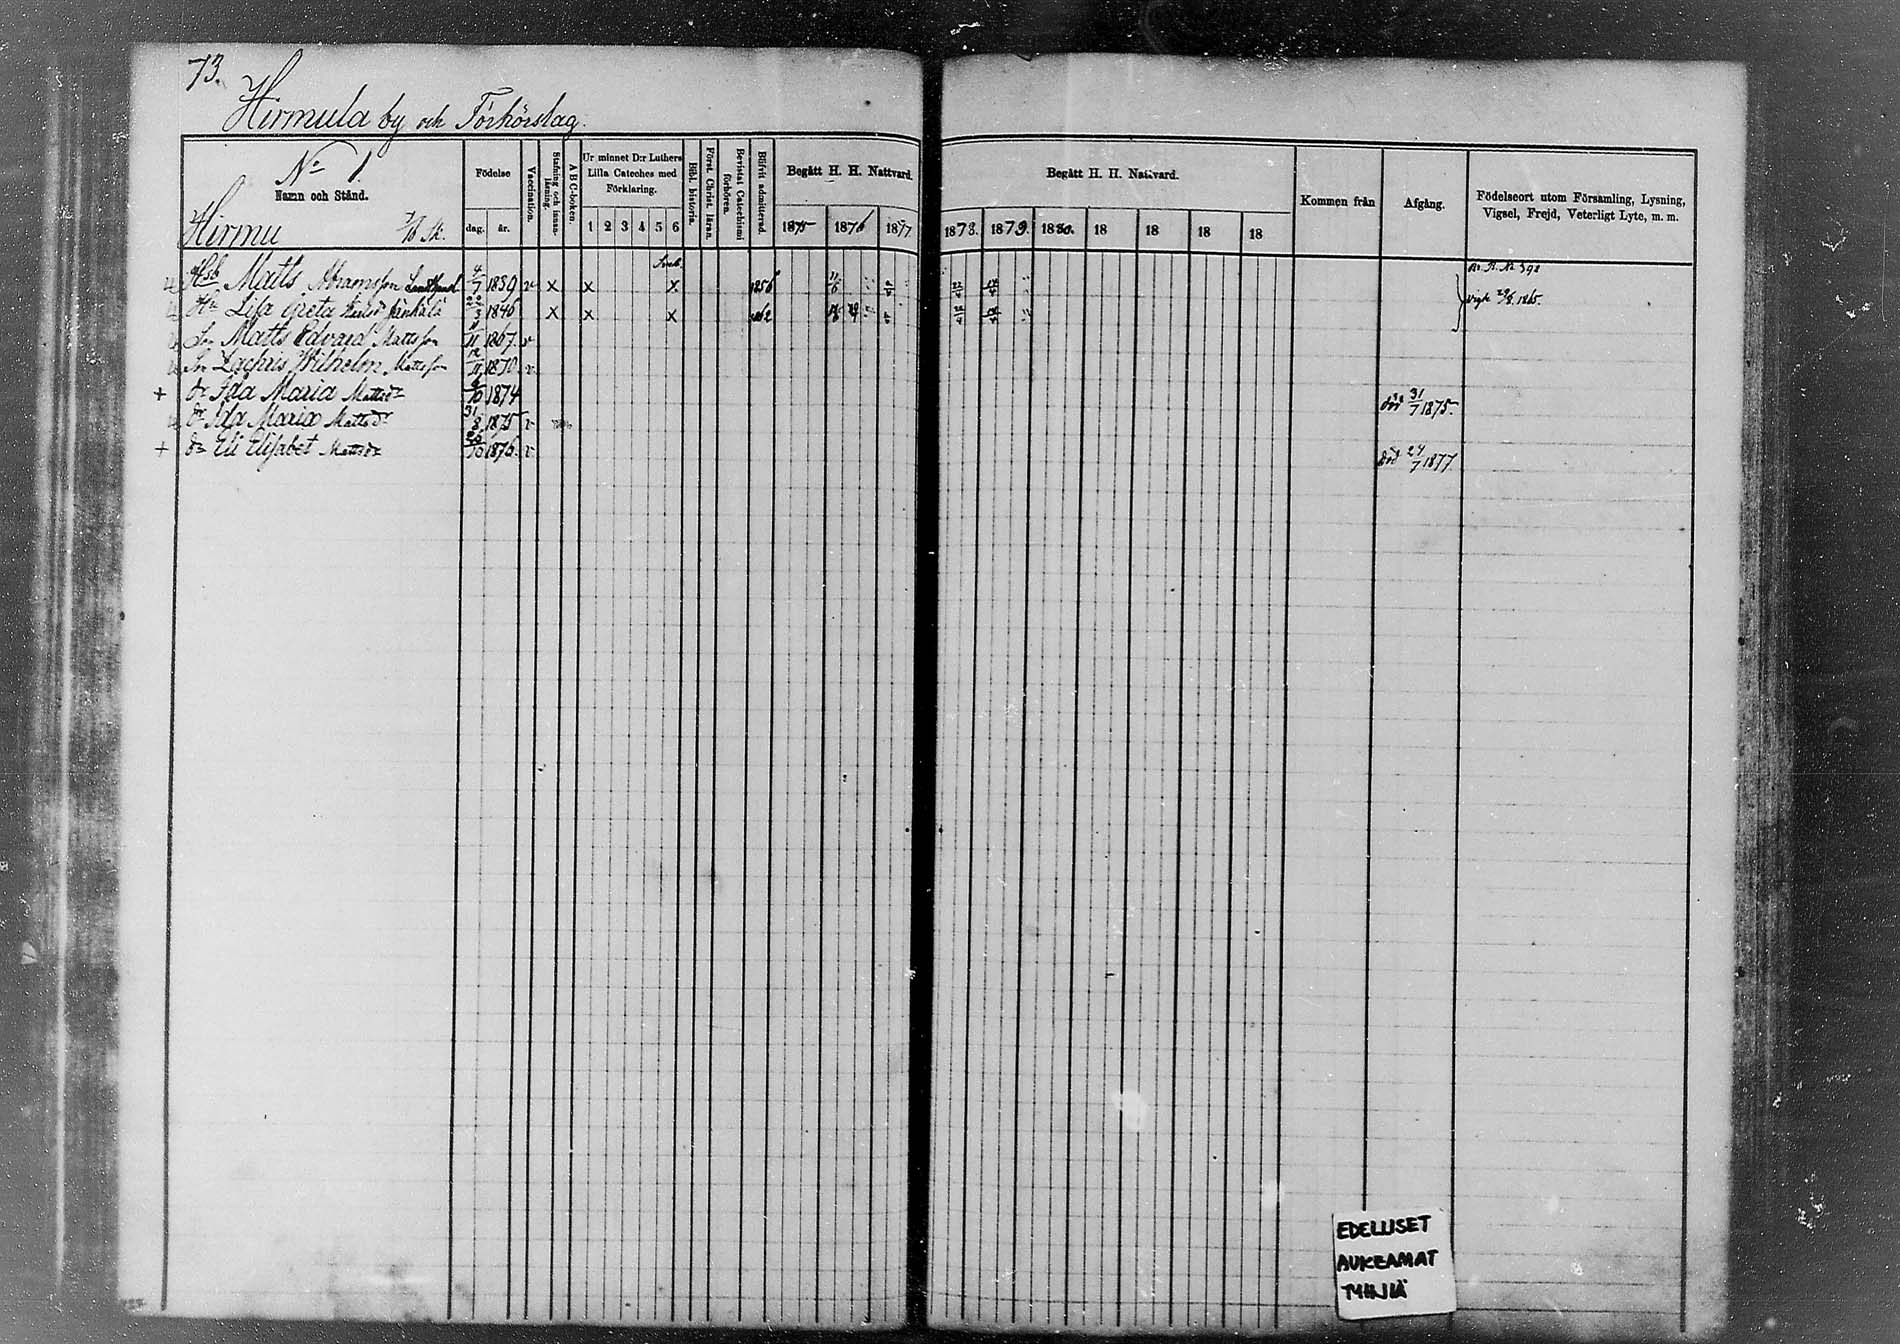 73.
Hirmula by och Förhörslag.
No 1.
Namn och Stånd.
Hirmu
Födelse
dag. år.
Vaccination.
Stafning och innanläsning.
A B C-boken.
Ur minnet D:r Luthers Lilla Cateches med Förklaring.
1 2 3 4 5 6
Bibl. historia.
Först. Christ. läran.
Bevistat Catechismi förhören.
Blifvit admitterad.
Begått H. H. Nattvard.
1875 1876 1877
Begått H. H. Nattvard.
1878. 1879. 1880. 18 18 18 18
Kommen från
Afgång.
Födelseort utom Församling, Lysning, Vigsel, Frejd, Veterligt Lyte, m. m.
Matts Abramsson 4/7 1839 v x x x 1856
Lisa Greta 22/3 1846 x x x 1862 vigde 1865.
Son Matts Edvard Mattsson 11 1867 v
Son Zachris Wilhelm Mattsson 12/11 1870 v
+ dr Ida Maria Mattsdr 10 1874 död 31/7 1875.
dr Ida Maria Mattsdr 31/8 1875 v
+ dr Eli Elisabet Mattsdr 10 1876 v död 24/7 1877.
EDELLISET
AUKEAMAT
TYHJIÄ